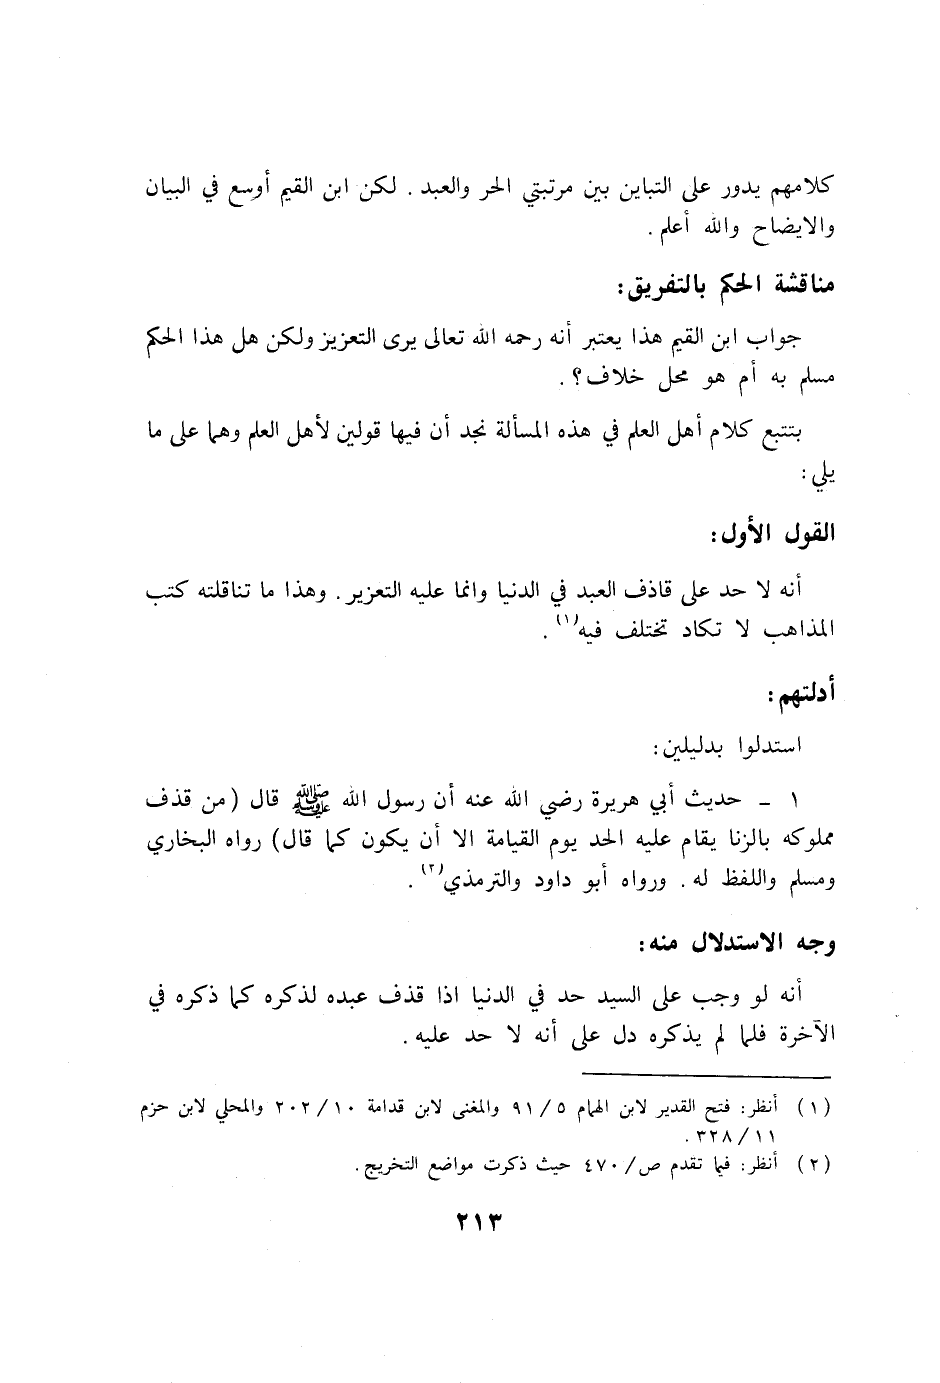 كلامهم يدور على التباين بين مرتبتي الحر والعبد . لكن ابن القيم أوسع في البيان
والايضاح والله أعلم .
مناقشة الحكم بالتفريق:
جواب ابن القيم هذا يعتبر أنه رحمه الله تعالى يرى التعزيز ولكن هل هذا الحكم
مسلم به أم هو محل خلاف؟ .
بتتبع كلام أهل العلم في هذه المسألة نجد أن فيها قولين لأهل العلم وهما على ما
يلي :
القول الأول:
أنه لا حد على قاذف العبد في الدنيا وانما عليه التعزير . وهذا ما تناقلته كتب
المذاهب لا تكاد تختلف فيه(١) .
أدلتهم:
استدلوا بدليلين:
١ - حديث أبي هريرة رضي الله عنه أن رسول الله ﷺ قال (من قذف
مملوكه بالزنا يقام عليه الحد يوم القيامة الا أن يكون كما قال) رواه البخاري
ومسلم واللفظ له . ورواه أبو داود والترمذي(٢) .
وجه الاستدلال منه:
أنه لو وجب على السيد حد في الدنيا اذا قذف عبده لذكره كما ذكره في
الآخرة فلما لم يذكره دل على أنه لا حد عليه .
(١) أنظر: فتح القدير لابن الهمام ٥/ ٩١ والمغنى لابن قدامة ١٠/ ٢٠٢ والمحلي لابن حزم
١١/ ٣٢٨ .
(٢) أنظر: فيما تقدم ص/ ٤٧٠ حيث ذكرت مواضع التخريج .
٢١٣